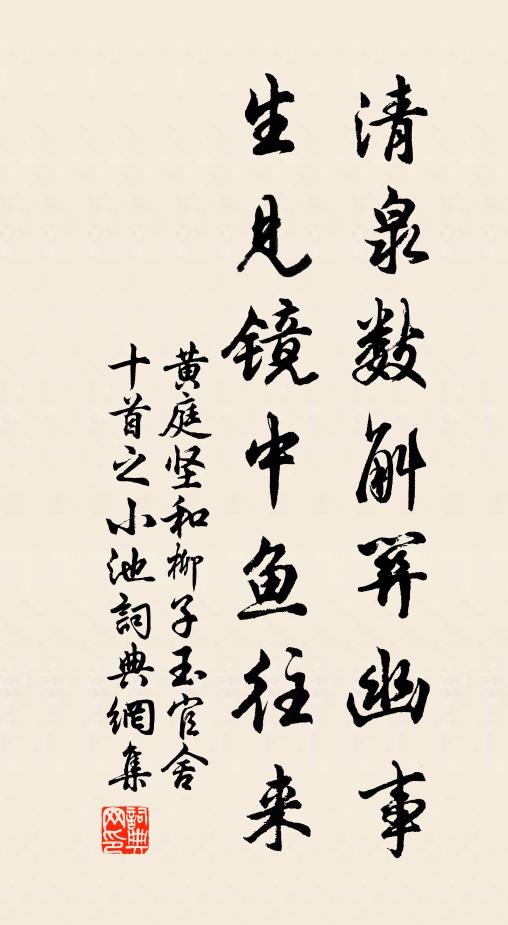 清泉数斛開幽事
生見镜中鱼往来
黄庭坚和柳子玉官舍
十首之小池詞典網集
詞典
网印